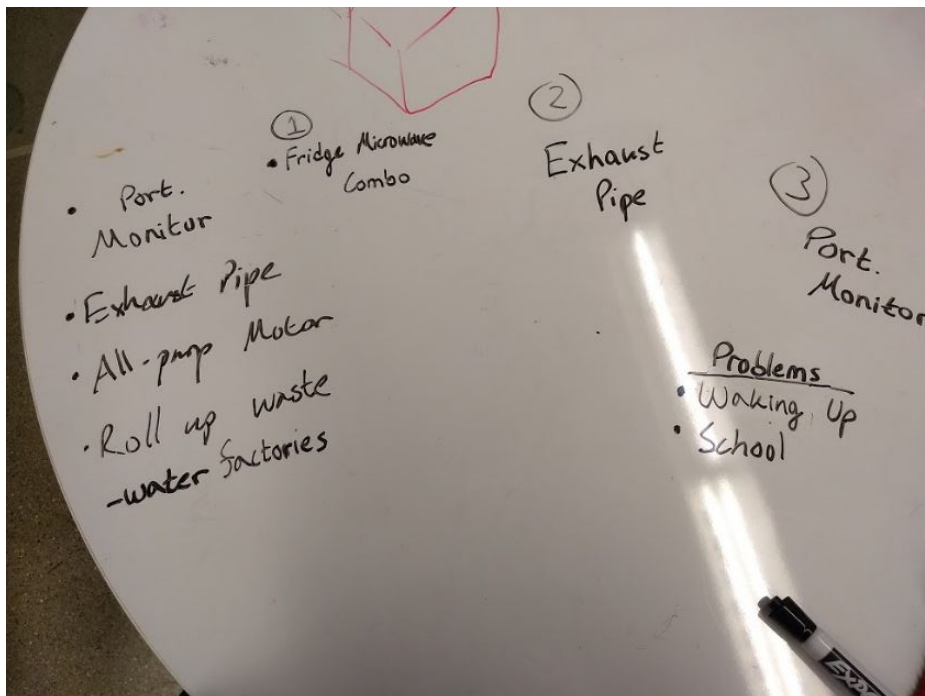 • Port.
Monitor
• Exhaust Pipe
• All-purp Motor
• Roll up waste
-water factories
1
• Fridge Microwave
Combo
2
Exhaust
Pipe
3
Port.
Monitor
Problems
• Waking Up
• School
EXPO